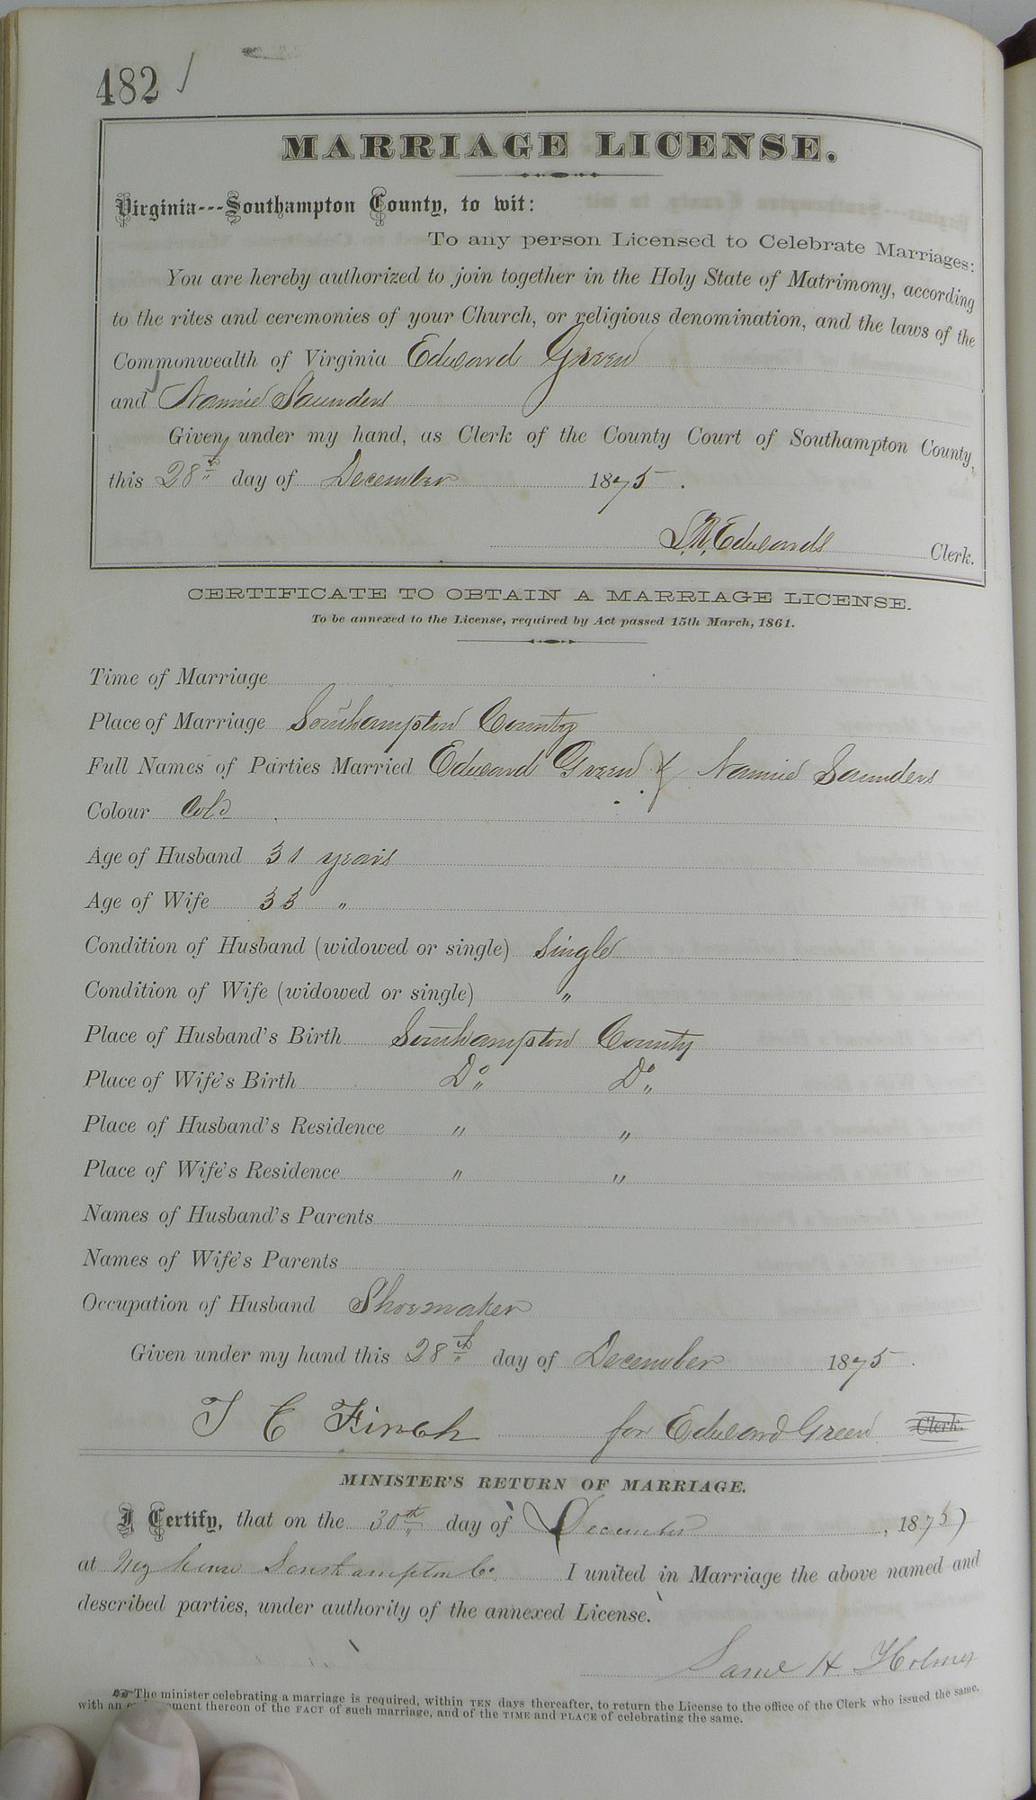 482
MARRIAGE LICENSE.
Virginia---Southampton County, to wit:
To any person Licensed to Celebrate Marriages:
You are hereby authorized to join together in the Holy State of Matrimony, according
to the rites and ceremonies of your Church, or religious denomination, and the laws of the
Commonwealth of Virginia Edward Green
and Nannie Saunders
Given under my hand, as Clerk of the County Court of Southampton County,
this 28th day of December 1875.
Edwards Clerk.
CERTIFICATE TO OBTAIN A MARRIAGE LICENSE.
To be annexed to the License, required by Act passed 15th March, 1861.
Time of Marriage
Place of Marriage Southampton County
Full Names of Parties Married Edward Green & Nannie Saunders
Colour Cold
Age of Husband 31 years
Age of Wife 33 "
Condition of Husband (widowed or single) Single
Condition of Wife (widowed or single) "
Place of Husband's Birth Southampton County
Place of Wife's Birth Do Do
Place of Husband's Residence " "
Place of Wife's Residence " "
Names of Husband's Parents
Names of Wife's Parents
Occupation of Husband Shoemaker
Given under my hand this 28th day of December 1875.
T C Finch for Edward Green Clerk.
MINISTER'S RETURN OF MARRIAGE.
I Certify, that on the 30th day of December, 1875)
at my house Southampton Co. I united in Marriage the above named and
described parties, under authority of the annexed License.
Saml H Holmes
The minister celebrating a marriage is required, within TEN days thereafter, to return the License to the office of the Clerk who issued the same,
with an thereon of the FACT of such marriage, and of the TIME and PLACE of celebrating the same.